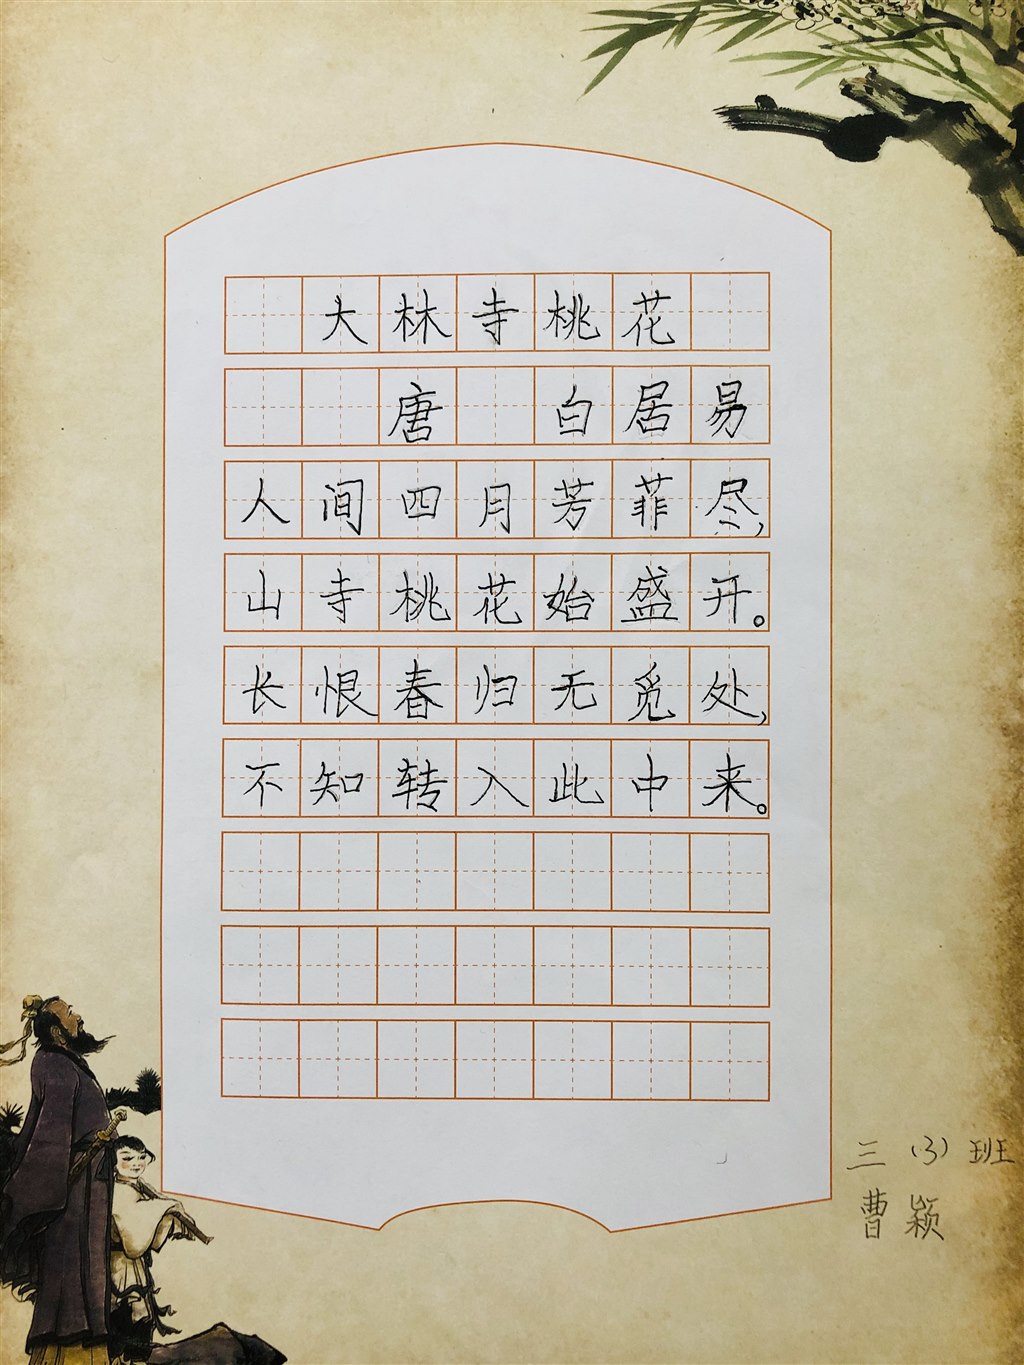 大林寺桃花
唐 白居易
人间四月芳菲尽,
山寺桃花始盛开。
长恨春归无觅处,
不知转入此中来。
三（3）班
曹颖